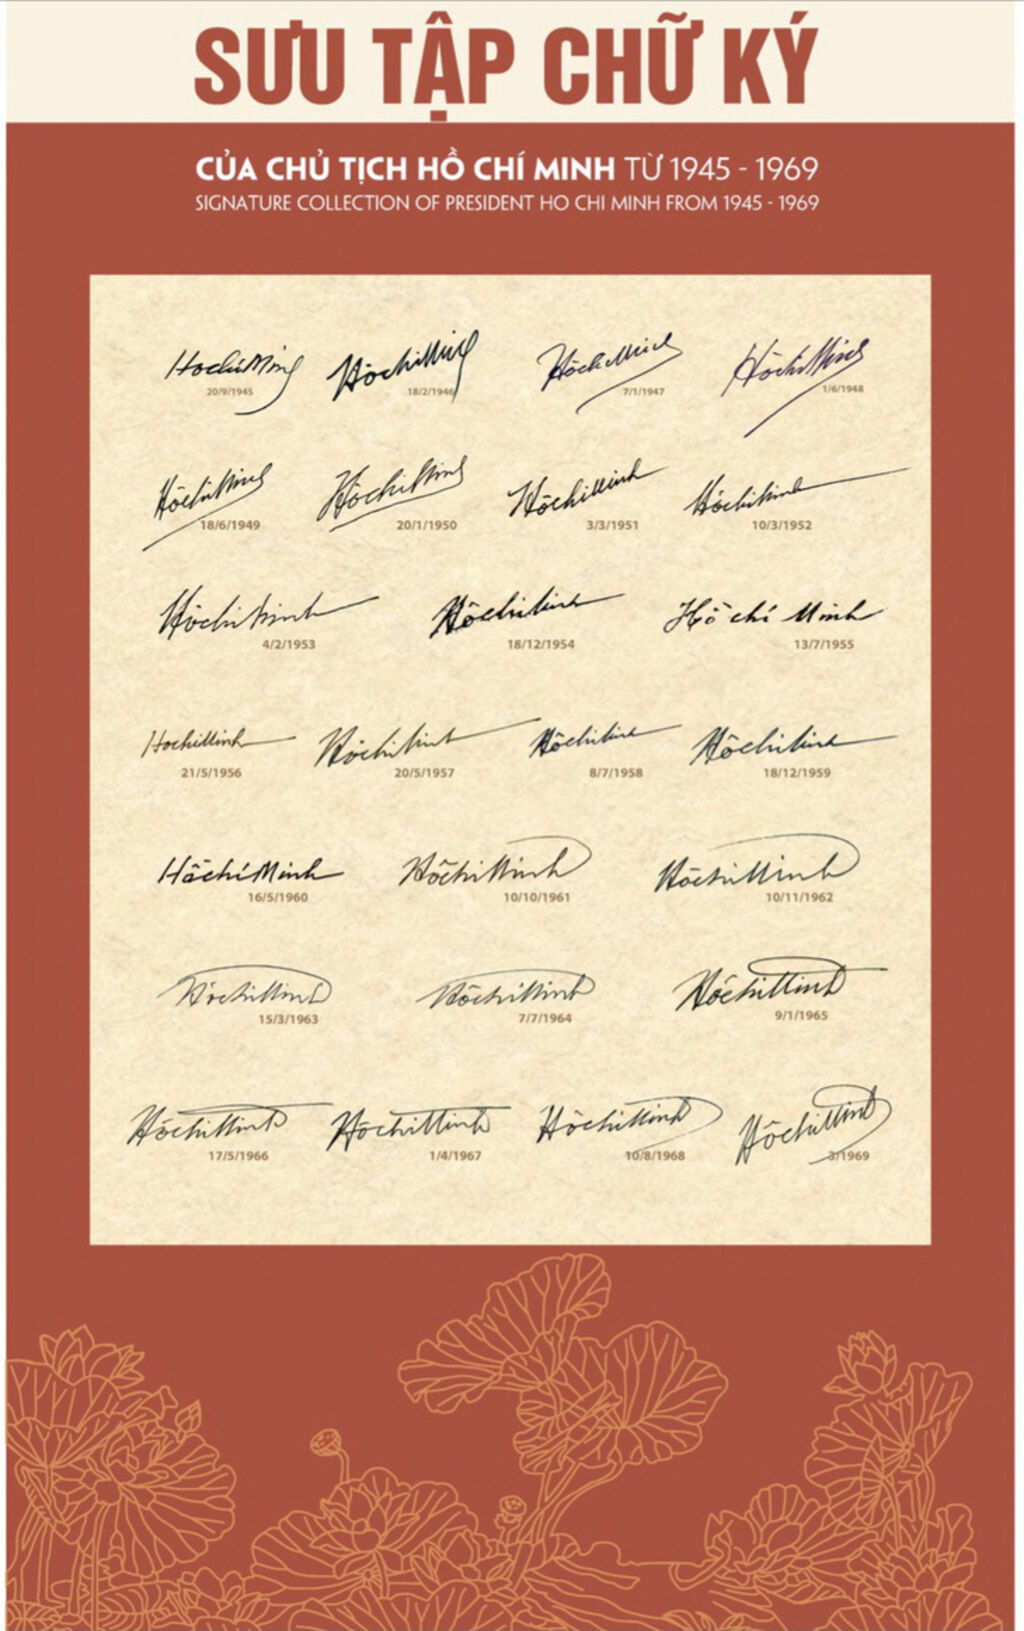 SƯU TẬP CHỮ KÝ
CỦA CHỦ TỊCH HỒ CHÍ MINH TỪ 1945 - 1969
SIGNATURE COLLECTION OF PRESIDENT HO CHI MINH FROM 1945 - 1969
HochiMinh HồchiMinh HồchiMinh HồchiMinh
20/9/1945 18/2/1946 7/1/1947 1/6/1948
HồchiMinh HồchiMinh Hồchiminh Hồchiminh
18/6/1949 20/1/1950 3/3/1951 10/3/1952
Hồchiminh Hồchiminh Hồ chí Minh
4/2/1953 18/12/1954 13/7/1955
HochiMinh Hồchiminh Hồchiminh Hồchiminh
21/5/1956 20/5/1957 8/7/1958 18/12/1959
HồchíMinh HồchiMinh HồchiMinh
16/5/1960 10/10/1961 10/11/1962
HồchiMinh HồchiMinh HồchiMinh
15/3/1963 7/7/1964 9/1/1965
HồchiMinh HồchiMinh HồchiMinh HồchiMinh
17/5/1966 1/4/1967 10/8/1968 3/1969